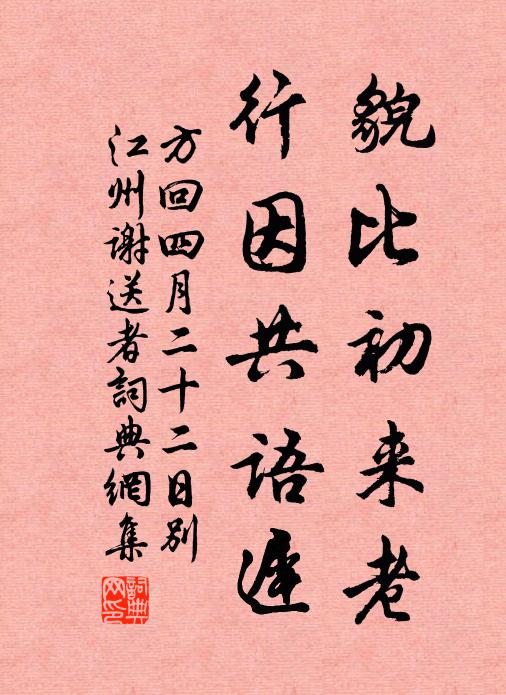 貌比初来老
行因共語遲
方回四月二十二日别
江州謝送者詞典網集
詞典网印